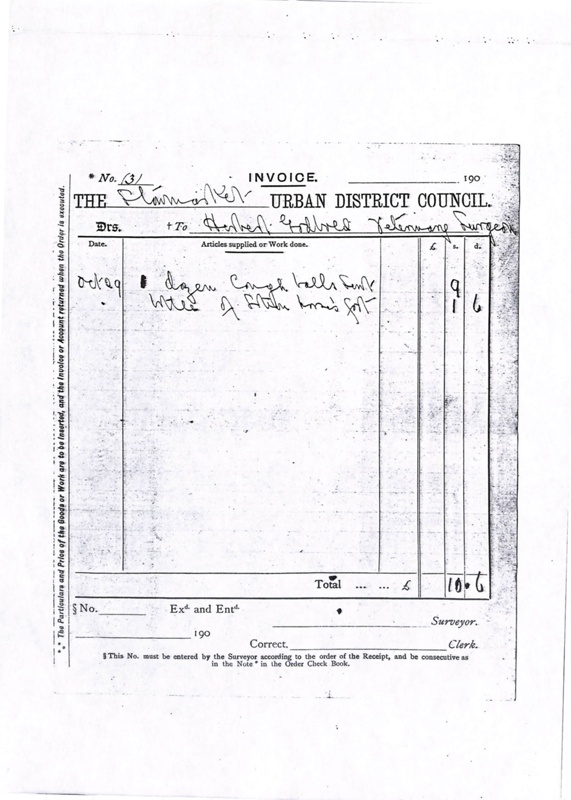 * No. 131 INVOICE. 190
THE Stowmarket URBAN DISTRICT COUNCIL.
Drs. † To Herbert Veterinary Surgeon
Date. Articles supplied or Work done. £ s. d.
Oct 29 1 dozen Cough balls 9
bottle of Lotion horse's foot 1 6
Total ... ... £ 10 . 6
§ No. Exd. and Entd.
Surveyor.
190
Correct. Clerk.
§ This No. must be entered by the Surveyor according to the order of the Receipt, and be consecutive as
in the Note * in the Order Check Book.
*** The Particulars and Price of the Goods or Work are to be inserted, and the Invoice or Account returned when the Order is executed.